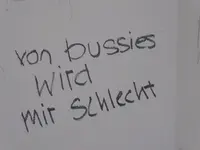 von bussies
wird
mir schlecht